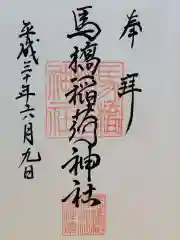 奉拝
馬橋稲荷神社
平成三十年六月九日